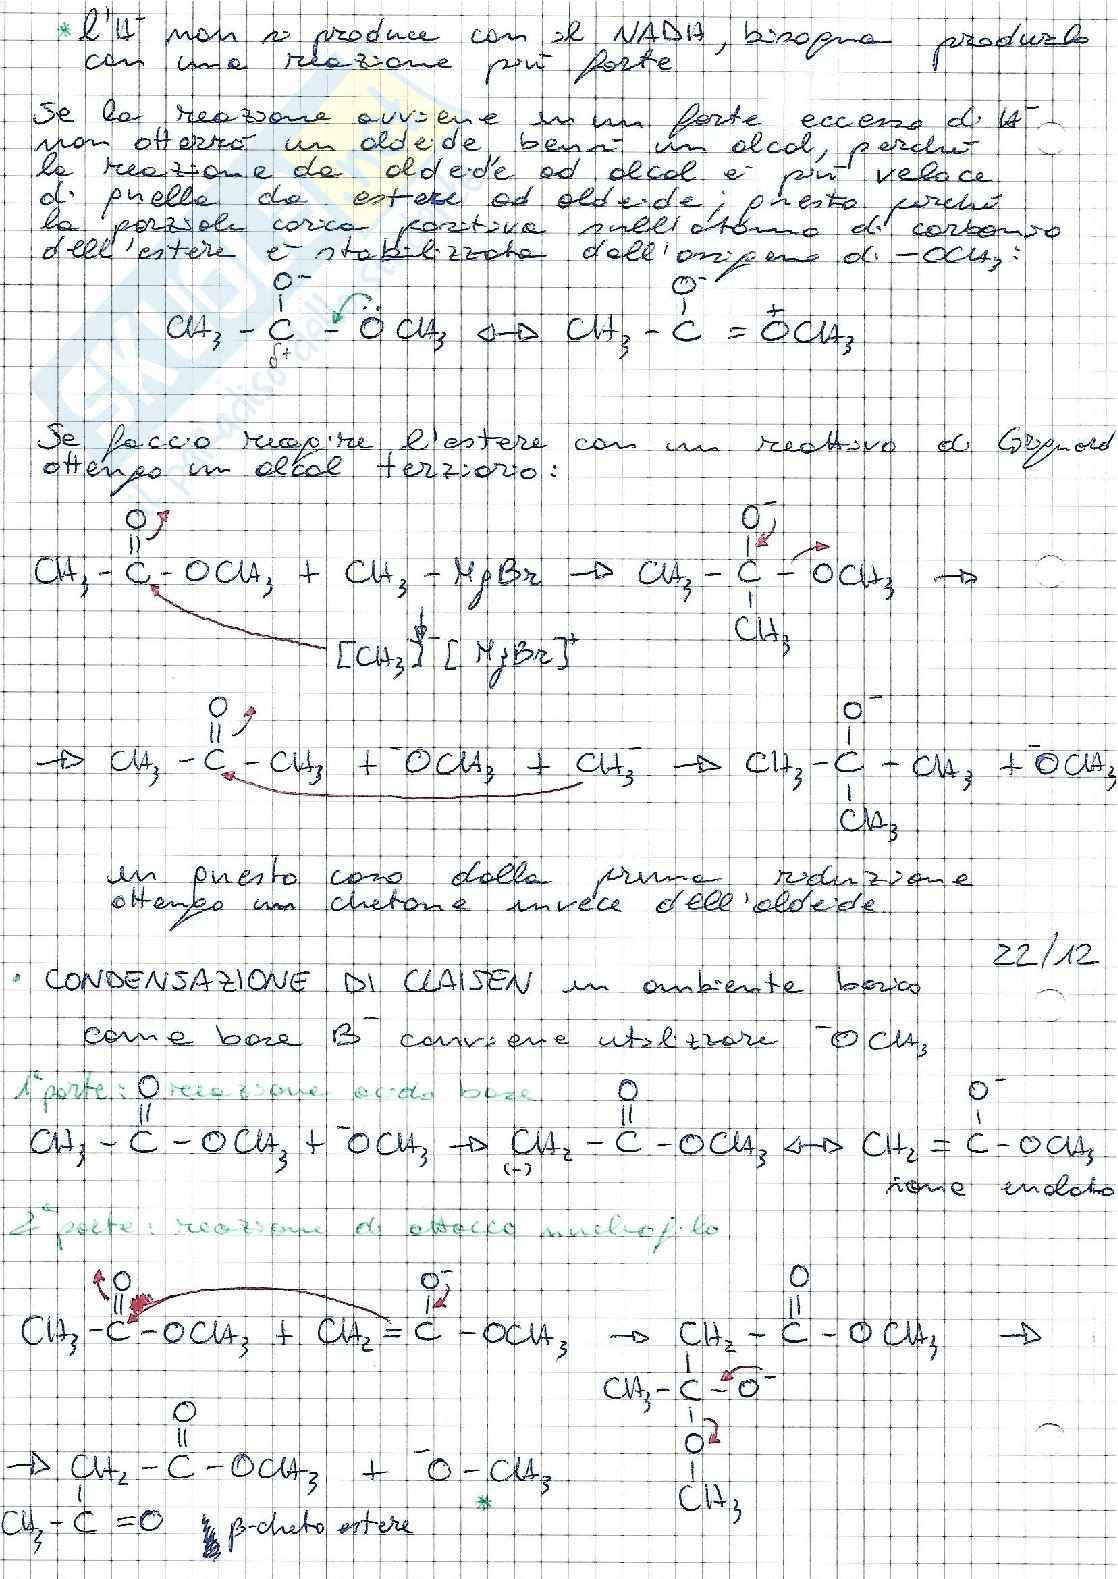 * l'H⁻ non si produce con il NADH, bisogna produrlo
con una reazione più forte
Se la reazione avviene in un forte eccesso di H⁻
non otterrò un aldeide, bensì un alcol, perché
la reazione da aldeide ad alcol è più veloce
di quella da estere ad aldeide; questo perché
la parziale carica positiva sull'atomo di carbonio
dell'estere è stabilizzata dall'ossigeno di -OCH₃:
O⁻ O⁻
CH₃ - C - ÖCH₃ ↔ CH₃ - C = O⁺CH₃
δ+
Se faccio reagire l'estere con un reattivo di Grignard
ottengo un alcol terziario:
O O⁻
CH₃ - C - OCH₃ + CH₃ - MgBr → CH₃ - C - OCH₃ →
CH₃
[CH₃]⁻ [MgBr]⁺
O O⁻
→ CH₃ - C - CH₃ + ⁻OCH₃ + CH₃⁻ → CH₃ - C - CH₃ + ⁻OCH₃
CH₃
in questo caso dalla prima riduzione
ottengo un chetone invece dell'aldeide.
22/12
• CONDENSAZIONE DI CLAISEN in ambiente basico
come base B⁻ conviene utilizzare ⁻OCH₃
1ª parte: reazione acido base
O O O⁻
CH₃ - C - OCH₃ + ⁻OCH₃ → CH₂ - C - OCH₃ ↔ CH₂ = C - OCH₃
(-)
ione enolato
2ª parte: reazione di attacco nucleofilo
O O⁻ O
CH₃ - C - OCH₃ + CH₂ = C - OCH₃ → CH₂ - C - OCH₃ →
CH₃ - C - O⁻
O
CH₃
O
→ CH₂ - C - OCH₃ + ⁻O - CH₃
*
CH₃ - C = O β-cheto estere